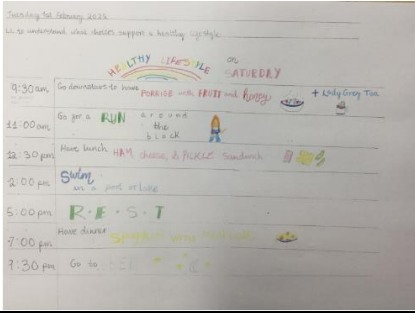 Tuesday 1st February 2022
LI: to understand what choices support a healthy lifestyle.
HEALTHY LIFESTYLE on
SATURDAY
9:30am Go downstairs to have PORRIDGE with FRUIT and Honey + Lady Grey Tea
11:00am Go for a RUN around
the
block
12:30pm Have lunch HAM cheese, & PICKLE Sandwich
2:00 pm Swim
in a pool or lake
5:00 pm R·E·S·T
7:00 pm Have dinner
9:30 pm Go to BED